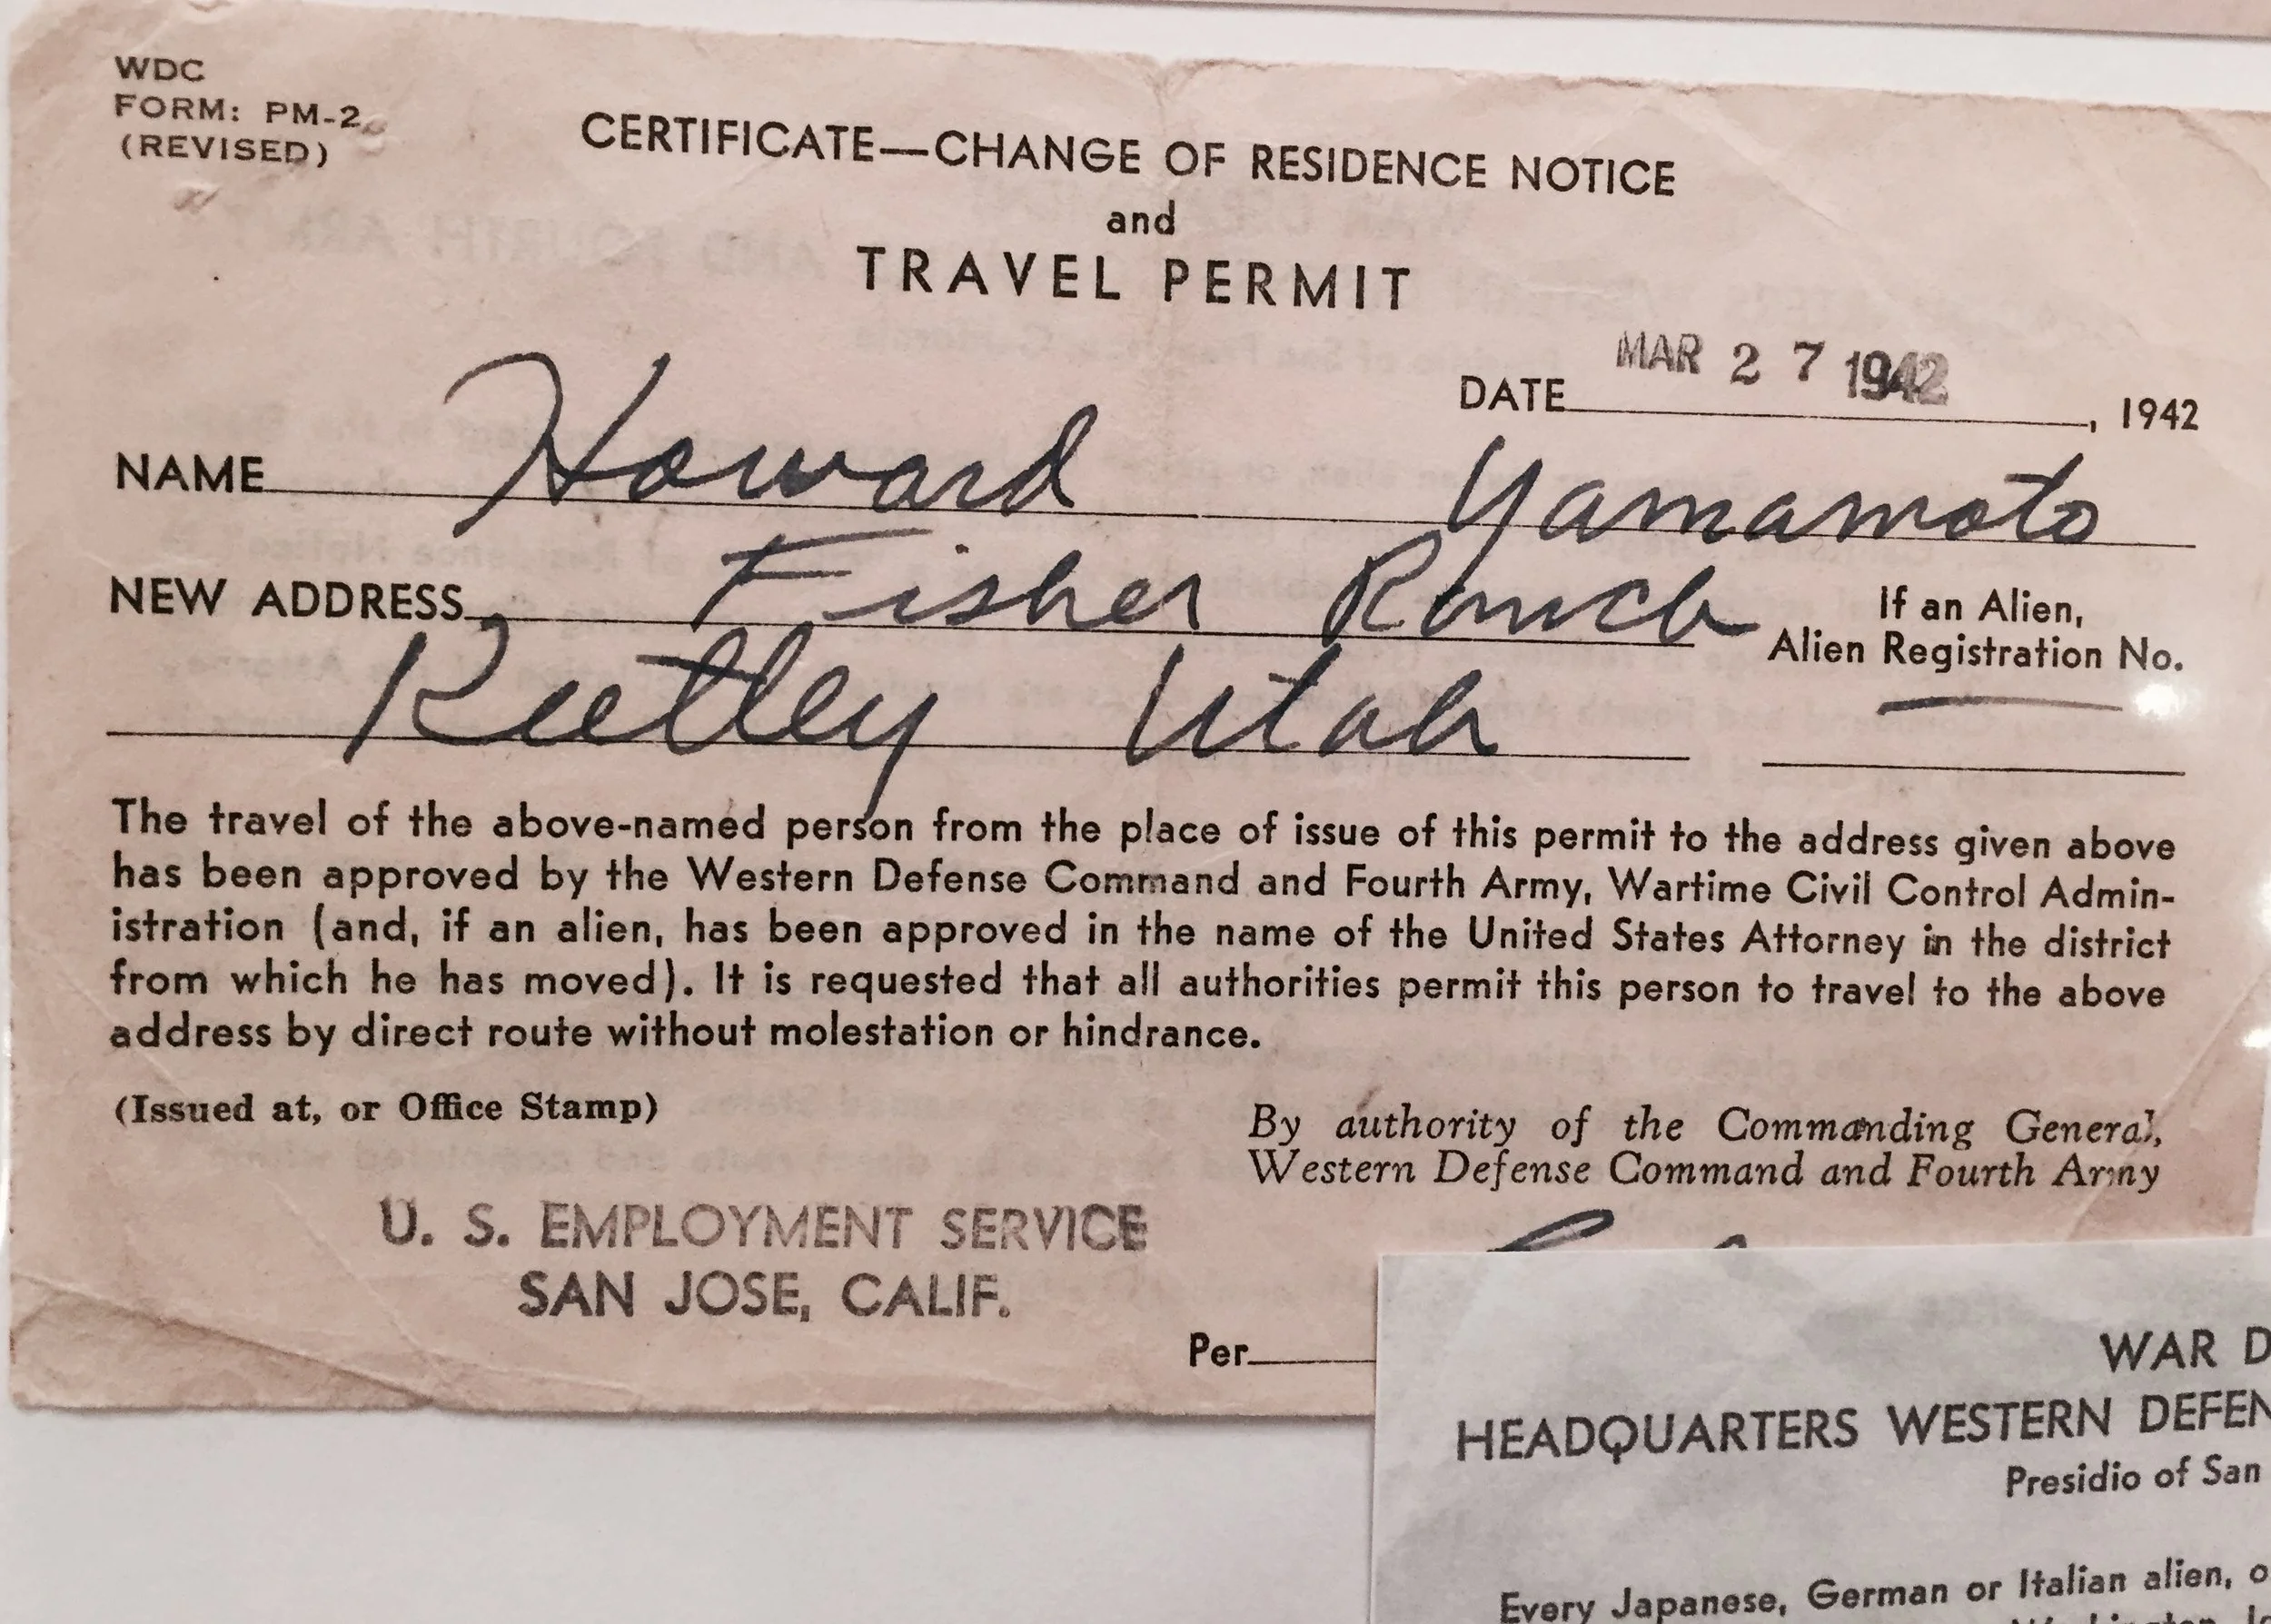 WDC
FORM: PM-2
(REVISED)
CERTIFICATE—CHANGE OF RESIDENCE NOTICE
and
TRAVEL PERMIT
DATE MAR 27 1942, 1942
NAME Howard Yamamoto
NEW ADDRESS Fisher Ranch
If an Alien,
Alien Registration No.
Keetley Utah
The travel of the above-named person from the place of issue of this permit to the address given above
has been approved by the Western Defense Command and Fourth Army, Wartime Civil Control Admin-
istration (and, if an alien, has been approved in the name of the United States Attorney in the district
from which he has moved). It is requested that all authorities permit this person to travel to the above
address by direct route without molestation or hindrance.
(Issued at, or Office Stamp)
By authority of the Commanding General,
Western Defense Command and Fourth Army
U. S. EMPLOYMENT SERVICE
SAN JOSE, CALIF.
Per
WAR D
HEADQUARTERS WESTERN DEFEN
Presidio of San
Every Japanese, German or Italian alien, o